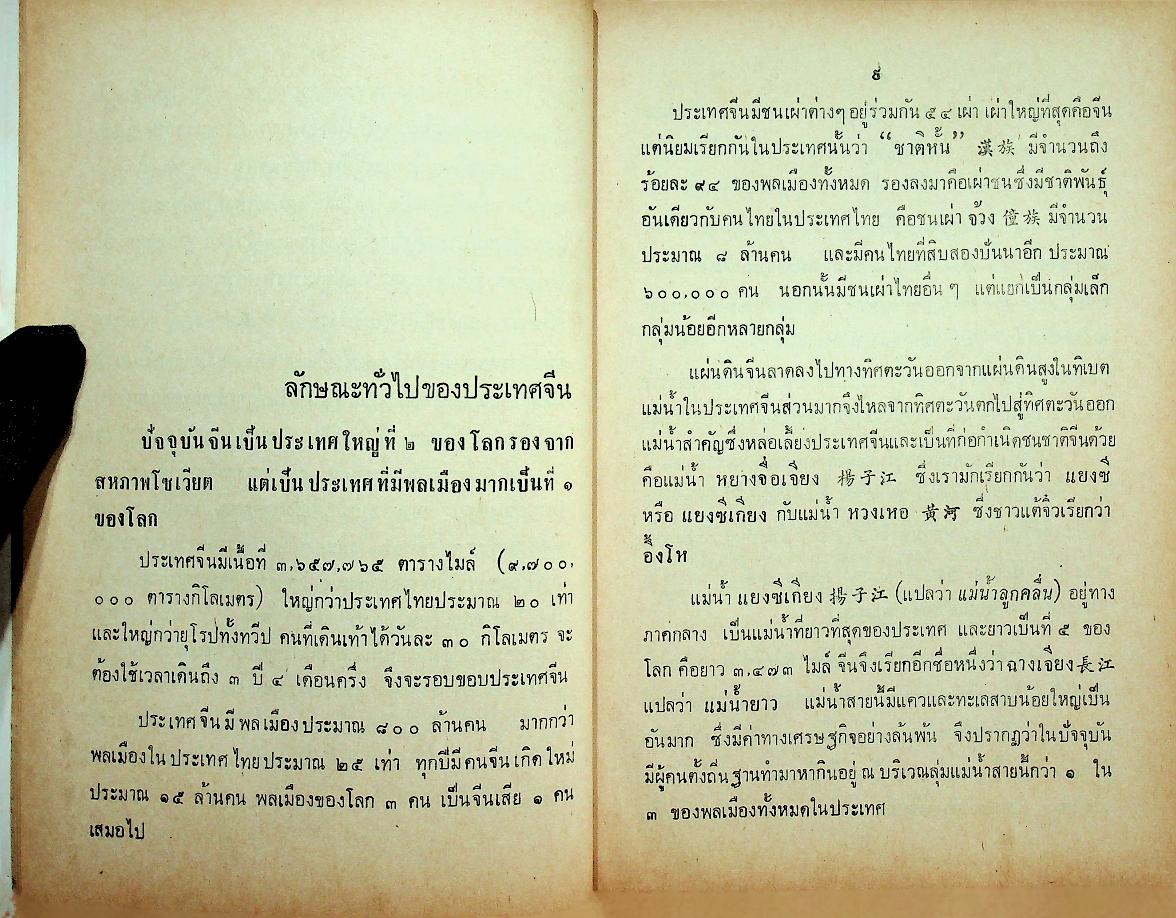 ลักษณะทั่วไปของประเทศจีน
ปัจจุบันจีนเป็นประเทศใหญ่ที่ ๒ ของโลกรองจาก
สหภาพโซเวียต แต่เป็นประเทศที่มีพลเมืองมากเป็นที่ ๑
ของโลก
ประเทศจีนมีเนื้อที่ ๓,๖๕๗,๗๖๕ ตารางไมล์ (๙,๗๐๐,
๐๐๐ ตารางกิโลเมตร) ใหญ่กว่าประเทศไทยประมาณ ๒๐ เท่า
และใหญ่กว่ายุโรปทั้งทวีป คนที่เดินเท้าได้วันละ ๓๐ กิโลเมตร จะ
ต้องใช้เวลาเดินถึง ๓ ปี ๔ เดือนครึ่ง จึงจะรอบขอบประเทศจีน
ประเทศจีนมีพลเมืองประมาณ ๘๐๐ ล้านคน มากกว่า
พลเมืองในประเทศไทยประมาณ ๒๕ เท่า ทุกปีมีคนจีนเกิดใหม่
ประมาณ ๑๕ ล้านคน พลเมืองของโลก ๓ คน เป็นจีนเสีย ๑ คน
เสมอไป
ประเทศจีนมีชนเผ่าต่างๆ อยู่ร่วมกัน ๕๔ เผ่า เผ่าใหญ่ที่สุดคือจีน
แต่นิยมเรียกกันในประเทศนั้นว่า “ชาติหั้น” 漢族 มีจำนวนถึง
ร้อยละ ๙๔ ของพลเมืองทั้งหมด รองลงมาคือเผ่าชนซึ่งมีชาติพันธุ์
อันเดียวกับคนไทยในประเทศไทย คือชนเผ่า จ้วง 僮族 มีจำนวน
ประมาณ ๘ ล้านคน และมีคนไทยที่สิบสองปันนาอีก ประมาณ
๖๐๐,๐๐๐ คน นอกนั้นมีชนเผ่าไทยอื่น ๆ แต่แยกเป็นกลุ่มเล็ก
กลุ่มน้อยอีกหลายกลุ่ม
แผ่นดินจีนลาดลงไปทางทิศตะวันออกจากแผ่นดินสูงในทิเบต
แม่น้ำในประเทศจีนส่วนมากจึงไหลจากทิศตะวันตกไปสู่ทิศตะวันออก
แม่น้ำสำคัญซึ่งหล่อเลี้ยงประเทศจีนและเป็นที่ก่อกำเนิดชนชาติจีนด้วย
คือแม่น้ำ หยางจื่อเจียง 揚子江 ซึ่งเรามักเรียกกันว่า แยงซี
หรือ แยงซีเกียง กับแม่น้ำ หวงเหอ 黃河 ซึ่งชาวแต้จิ๋วเรียกว่า
อึ้งโห
แม่น้ำ แยงซีเกียง 揚子江 (แปลว่า แม่น้ำลูกคลื่น) อยู่ทาง
ภาคกลาง เป็นแม่น้ำที่ยาวที่สุดของประเทศ และยาวเป็นที่ ๕ ของ
โลก คือยาว ๓,๔๗๓ ไมล์ จีนจึงเรียกอีกชื่อหนึ่งว่า ฉางเจียง 長江
แปลว่า แม่น้ำยาว แม่น้ำสายนี้มีแควและทะเลสาบน้อยใหญ่เป็น
อันมาก ซึ่งมีค่าทางเศรษฐกิจอย่างล้นพ้น จึงปรากฏว่าในปัจจุบัน
มีผู้คนตั้งถิ่นฐานทำมาหากินอยู่ ณ บริเวณลุ่มแม่น้ำสายนี้กว่า ๑ ใน
๓ ของพลเมืองทั้งหมดในประเทศ